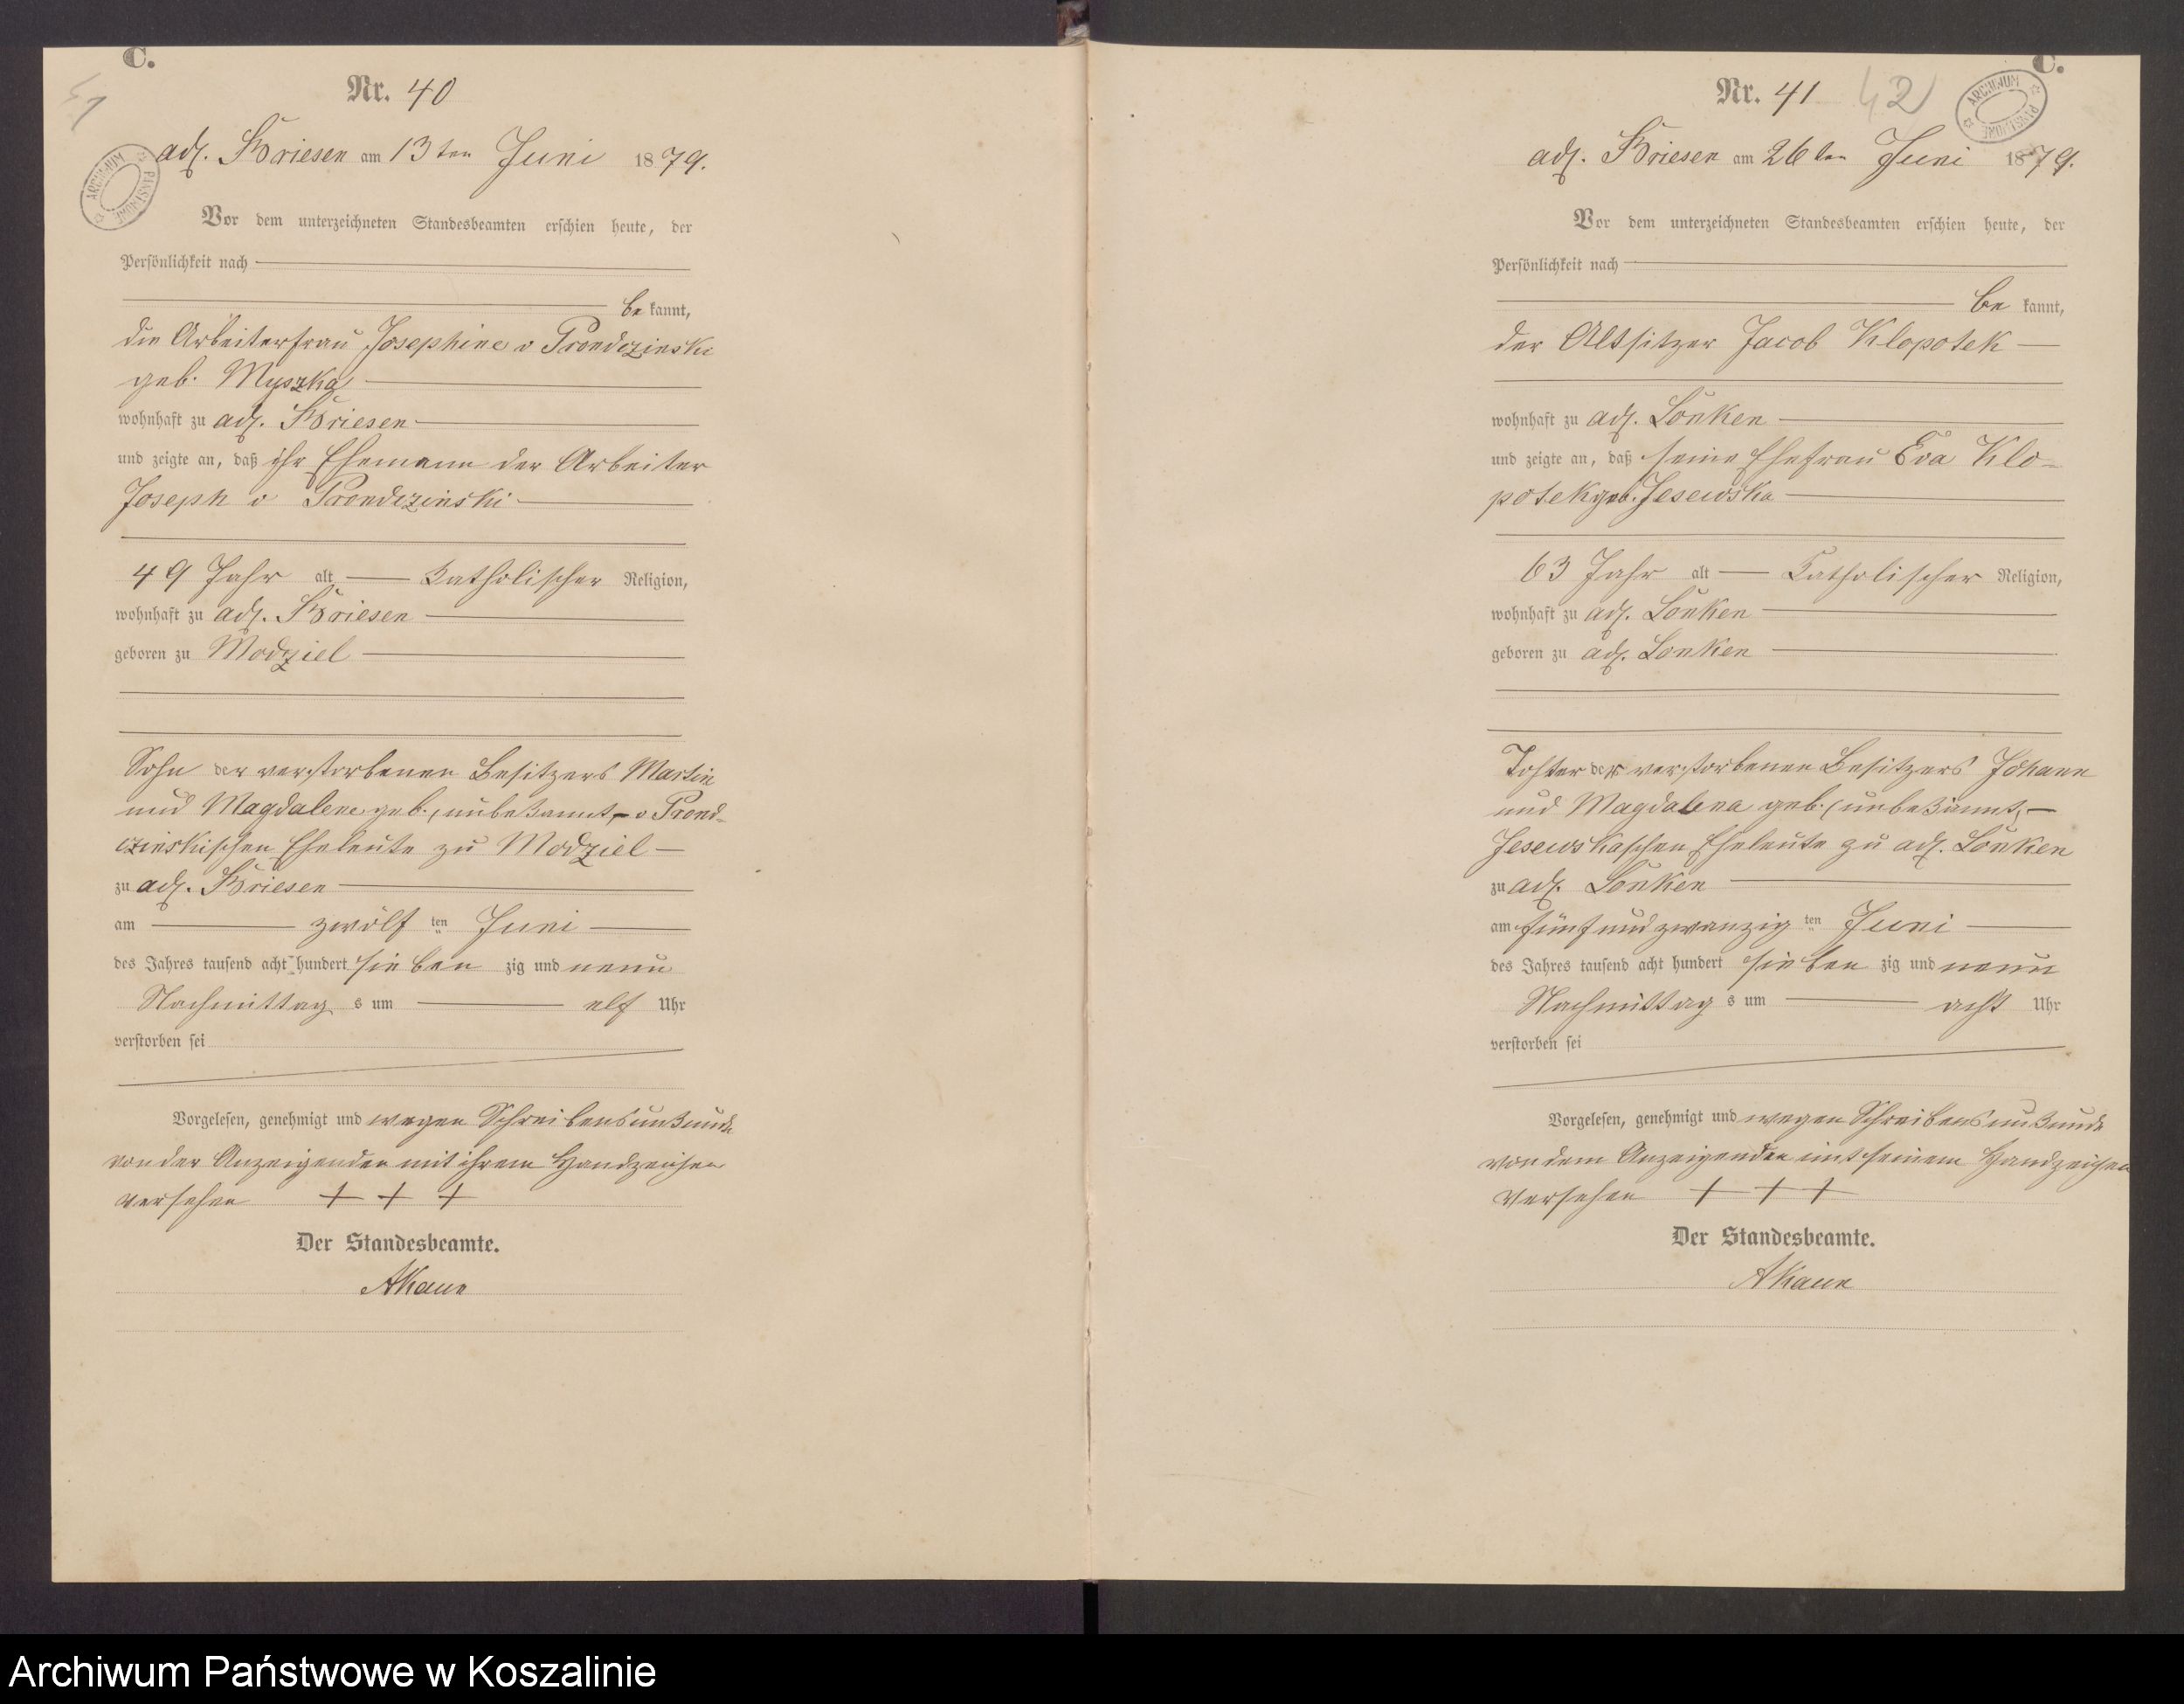 C.
Nr. 40
adl. Briesen am 13ten Juni 1879.
Vor dem unterzeichneten Standesbeamten erschien heute, der
Persönlichkeit nach
be kannt,
die Arbeiterfrau Josephine v Prondczinski
geb. Myszka
wohnhaft zu adl. Briesen
und zeigte an, daß ihr Ehemann der Arbeiter
Joseph v Prondczinski
49 Jahr alt Katholischer Religion,
wohnhaft zu adl. Briesen
geboren zu Modziel
Sohn der verstorbenen Besitzers Martin
und Magdalene geb. (unbekannt) v Prond-
czinskischen Eheleute zu Modziel
zu adl. Briesen
am zwölf ten Juni
des Jahres tausend acht hundert sieben zig und neun
Nachmittag s um elf Uhr
verstorben sei
Vorgelesen, genehmigt und wegen Schreibensunkunde
von der Anzeigenden mit ihrem Handzeichen
versehen + + +
Der Standesbeamte.
AKaun
ARCHIWUM PAŃSTWOWE
C.
Nr. 41 42
ARCHIWUM PAŃSTWOWE
adl. Briesen am 26ten Juni 1879.
Vor dem unterzeichneten Standesbeamten erschien heute, der
Persönlichkeit nach
be kannt,
der Altsitzer Jacob Klopotek
wohnhaft zu adl. Lonken
und zeigte an, daß seine Ehefrau Eva Klo-
potek geb. Jesewska
63 Jahr alt Katholischer Religion,
wohnhaft zu adl. Lonken
geboren zu adl. Lonken
Tochter der verstorbenen Besitzers Johann
und Magdalena geb. (unbekannt)
Jesewskaschen Eheleute zu adl. Lonken
zu adl. Lonken
am fünf und zwanzig ten Juni
des Jahres tausend acht hundert sieben zig und neun
Nachmittag s um acht Uhr
verstorben sei
Vorgelesen, genehmigt und wegen Schreibensunkunde
von dem Anzeigenden mit seinem Handzeichen
versehen + + +
Der Standesbeamte.
AKaun
Archiwum Państwowe w Koszalinie